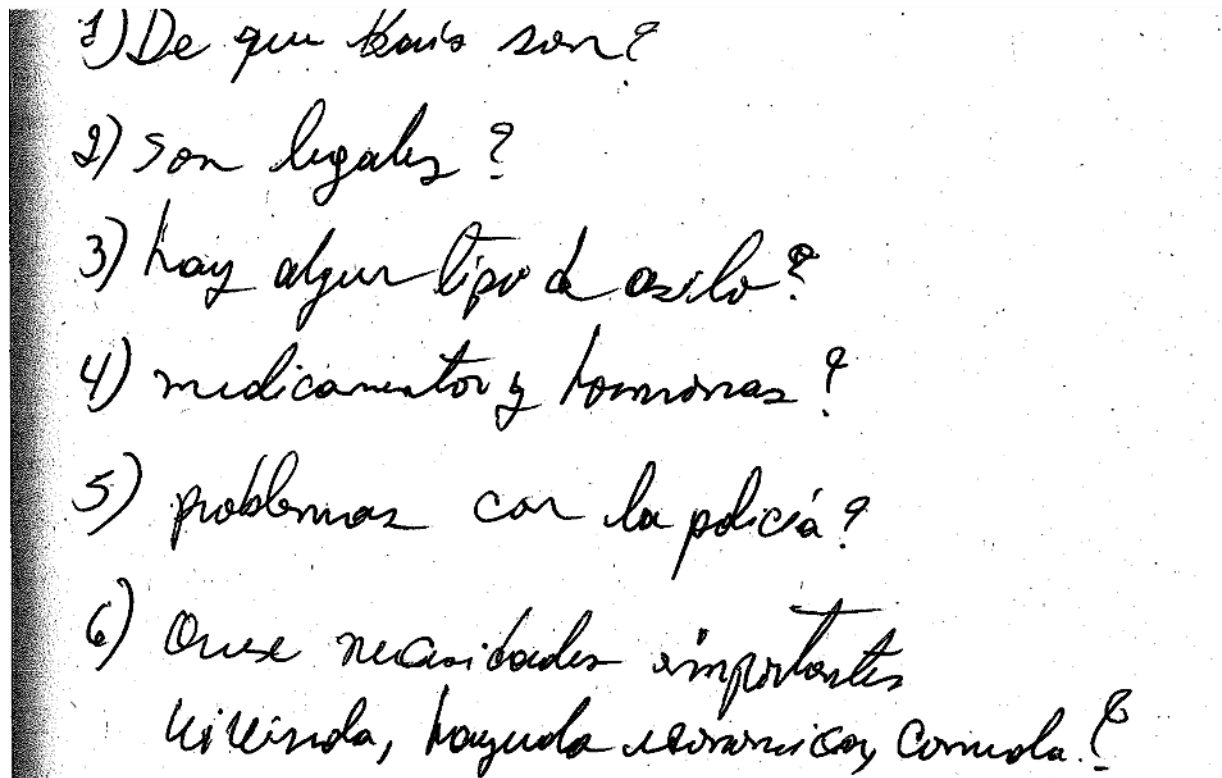 1) De que Pais son?
2) son legales?
3) hay algun tipo de asilo?
4) medicamentos y hormonas?
5) problemas con la policía?
6) necesidades importantes
vivienda, hayuda economica, comida?